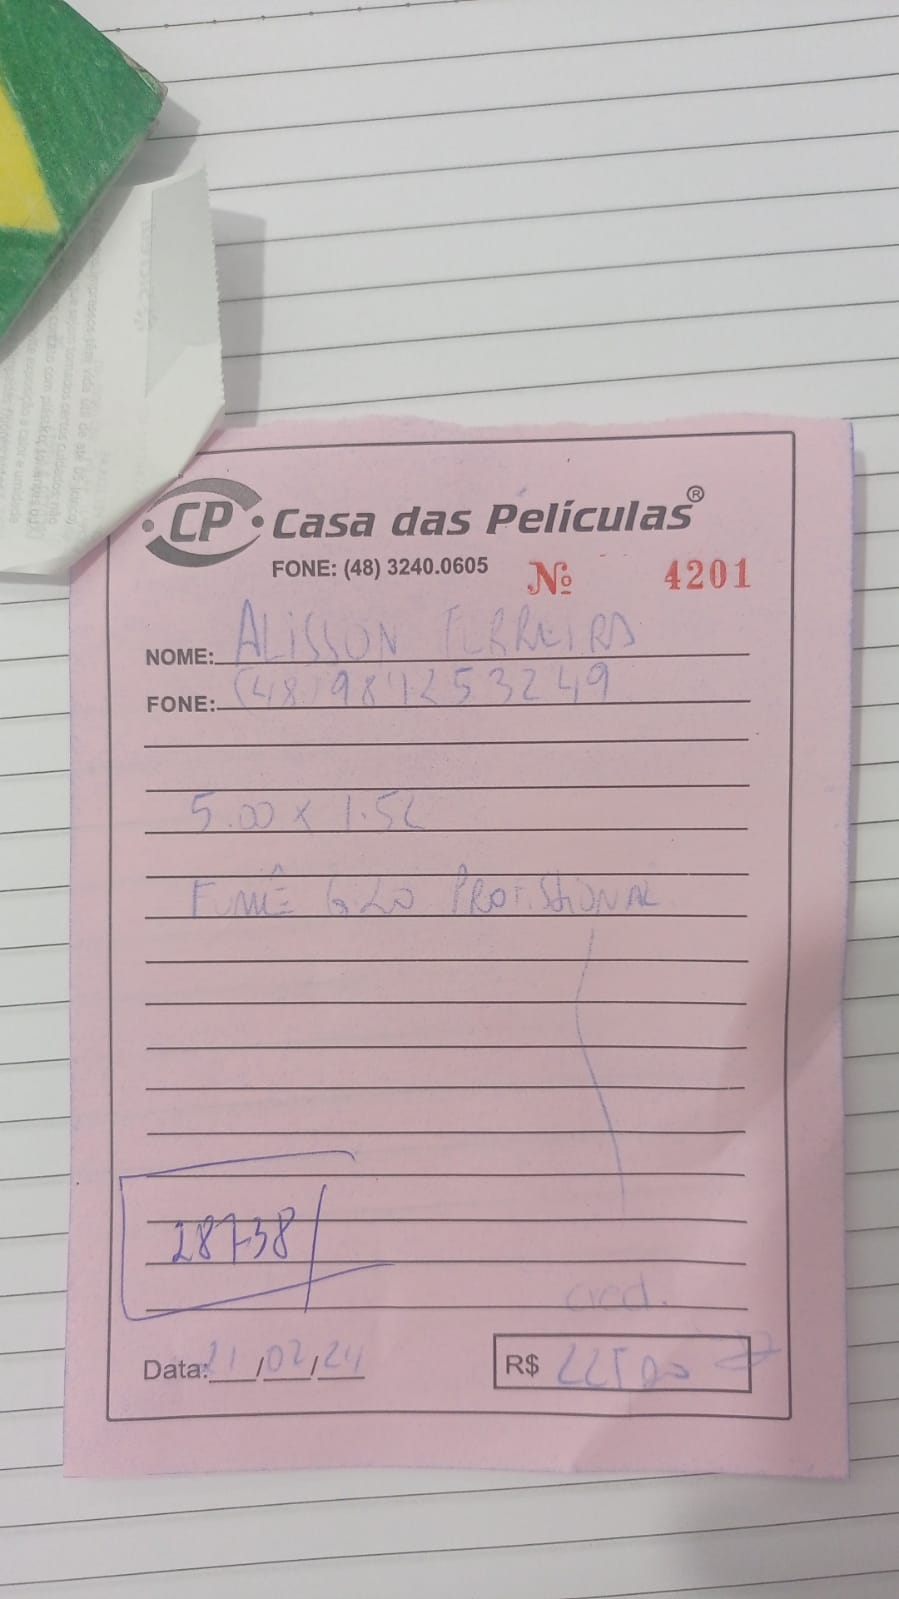 CP Casa das Películas®
FONE: (48) 3240.0605 Nº 4201
NOME: ALISSON FERREIRA
FONE: (48) 984253249
5.00 x 1.52
FUMÊ G20 PROFISSIONAL
28738
cred.
Data: 21/02/24 R$